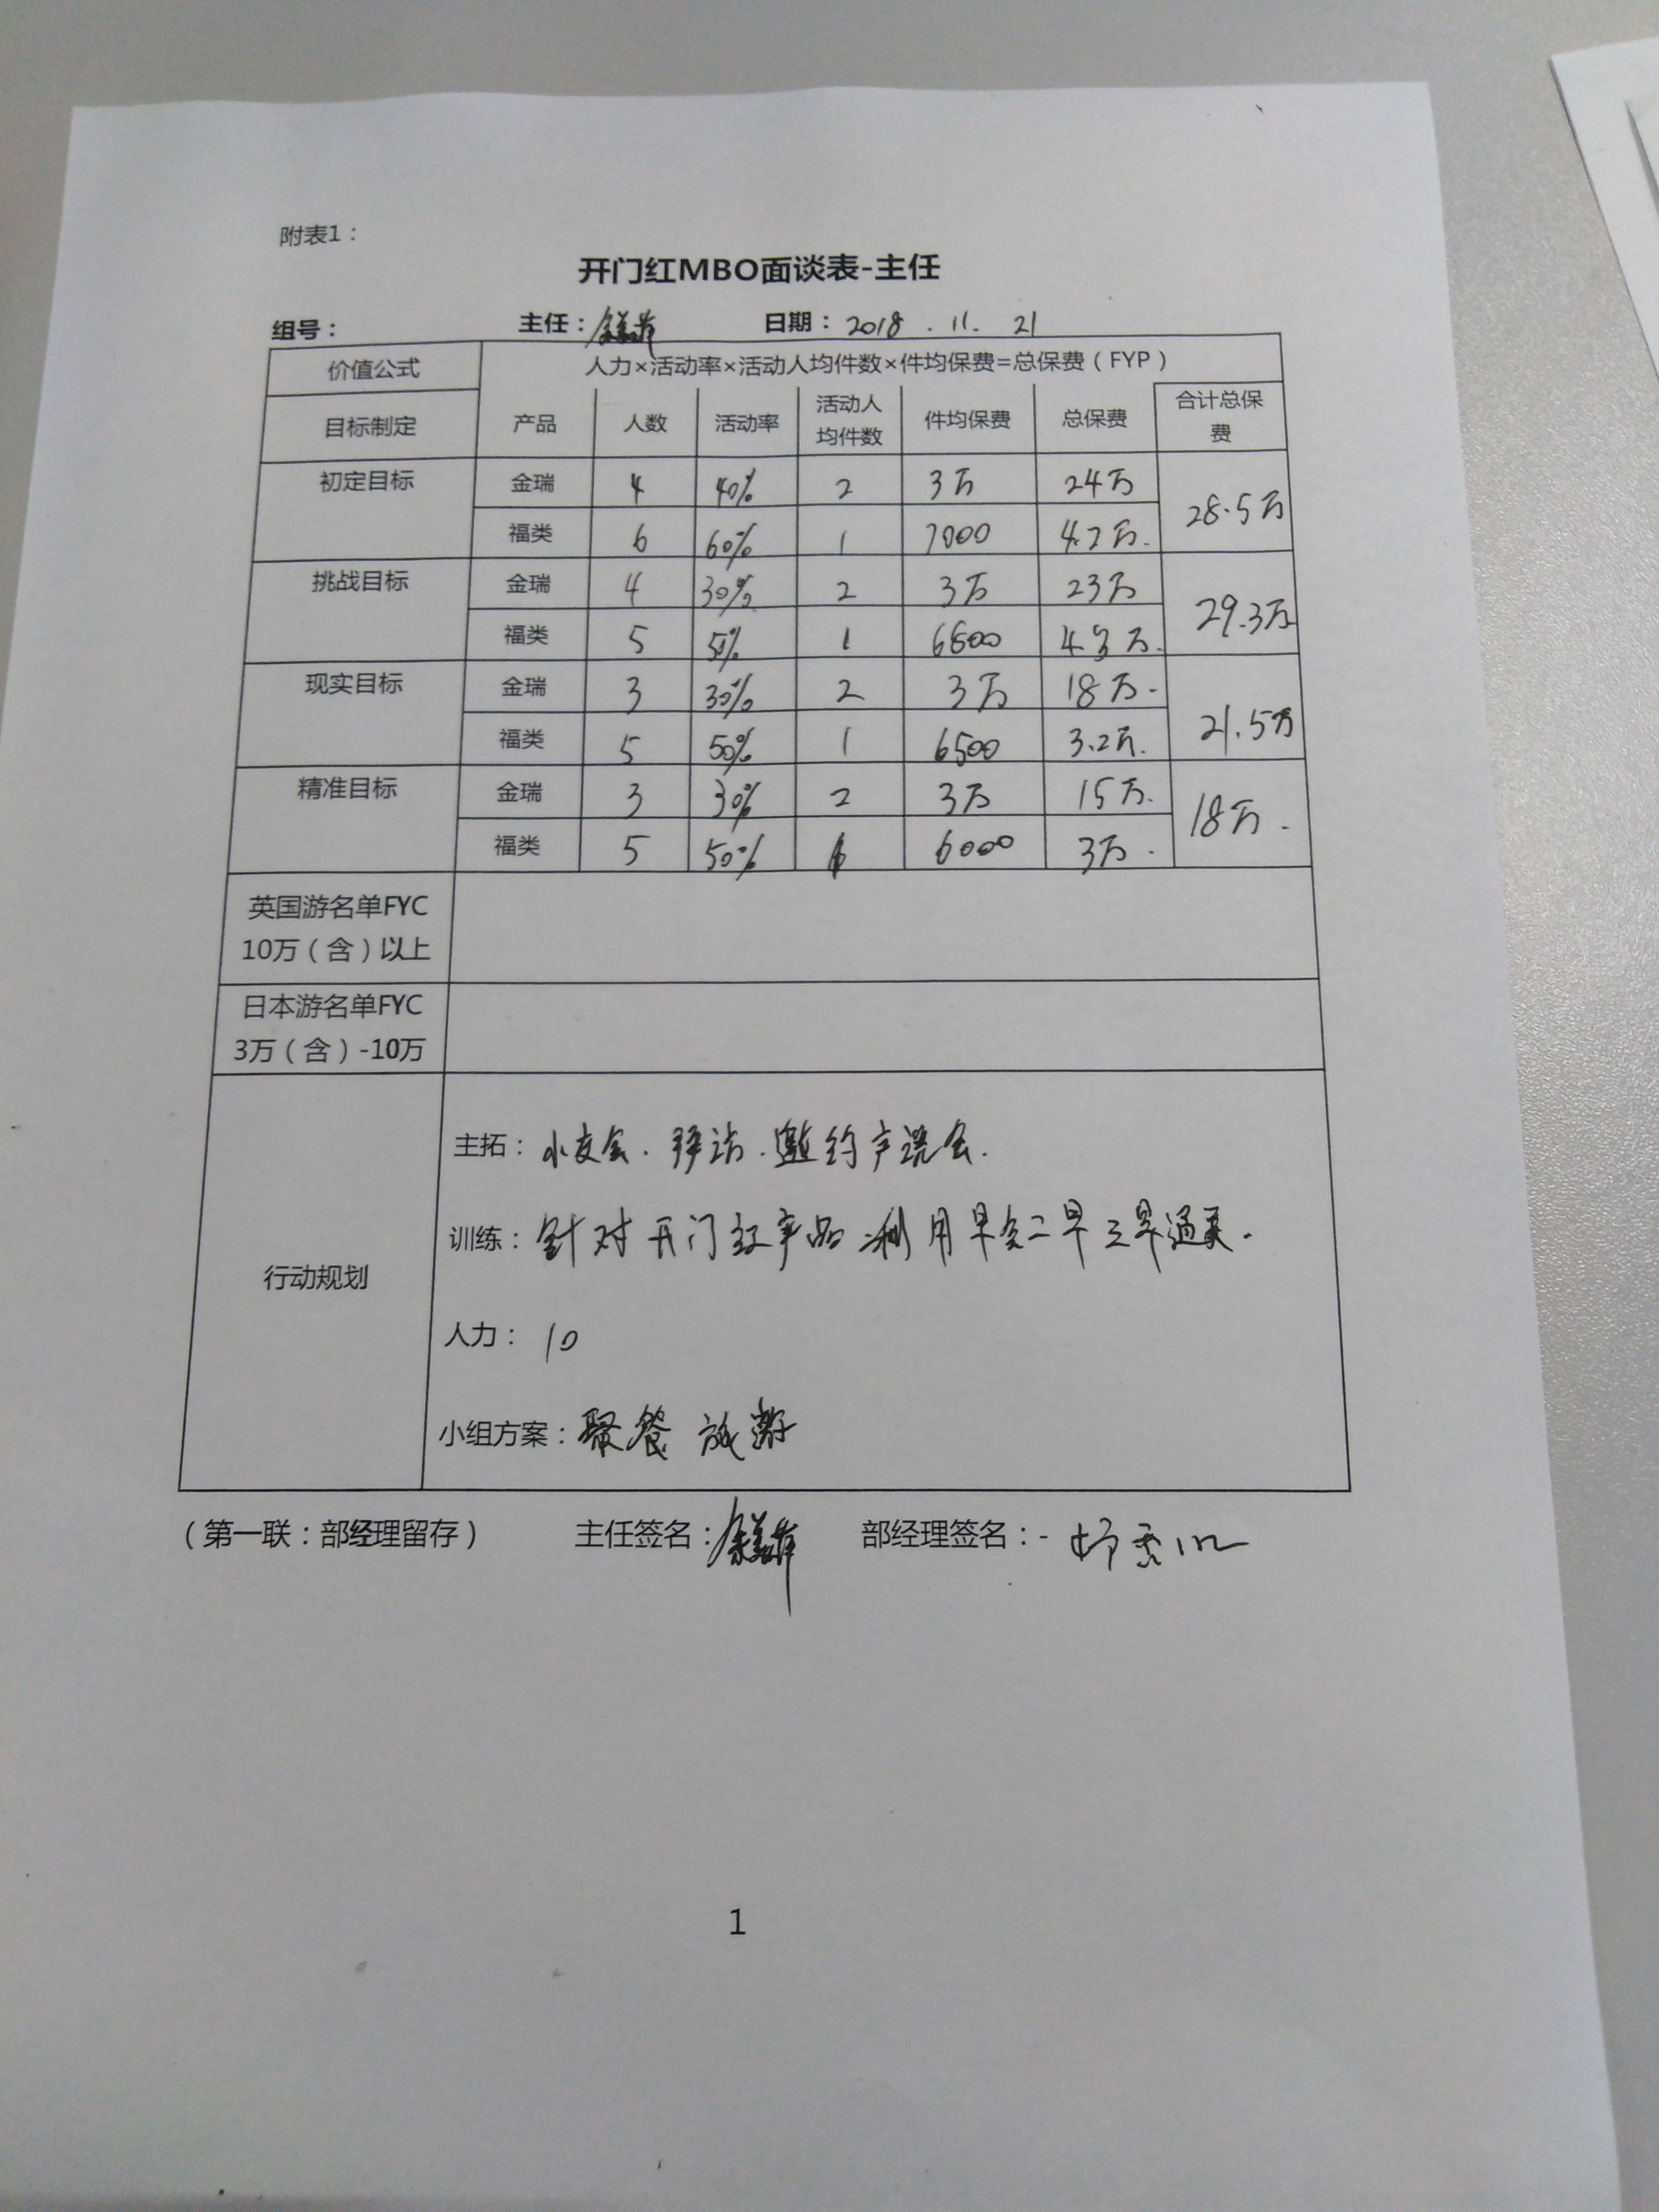 附表1：
开门红MBO面谈表-主任
组号： 主任： 日期：2018.11.21
价值公式 人力×活动率×活动人均件数×件均保费=总保费（FYP）
目标制定 产品 人数 活动率 活动人均件数 件均保费 总保费 合计总保费
初定目标 金瑞 4 40% 2 3万 24万 28.5万
福类 6 60% 1 7000 4.2万.
挑战目标 金瑞 4 30% 2 3万 23万 29.3万
福类 5 5% 1 6800 万.
现实目标 金瑞 3 30% 2 3万 18万. 21.5万
福类 5 50% 1 6500 3.2万.
精准目标 金瑞 3 30% 2 3万 15万. 18万.
福类 5 50% 1 6000 3万.
英国游名单FYC
10万（含）以上
日本游名单FYC
3万（含）-10万
行动规划
主拓：小交会.拜访.邀约产说会.
训练：针对开门红产品.利用早会二早三早通关.
人力：10
小组方案：聚餐 旅游
（第一联：部经理留存） 主任签名： 部经理签名：-
1